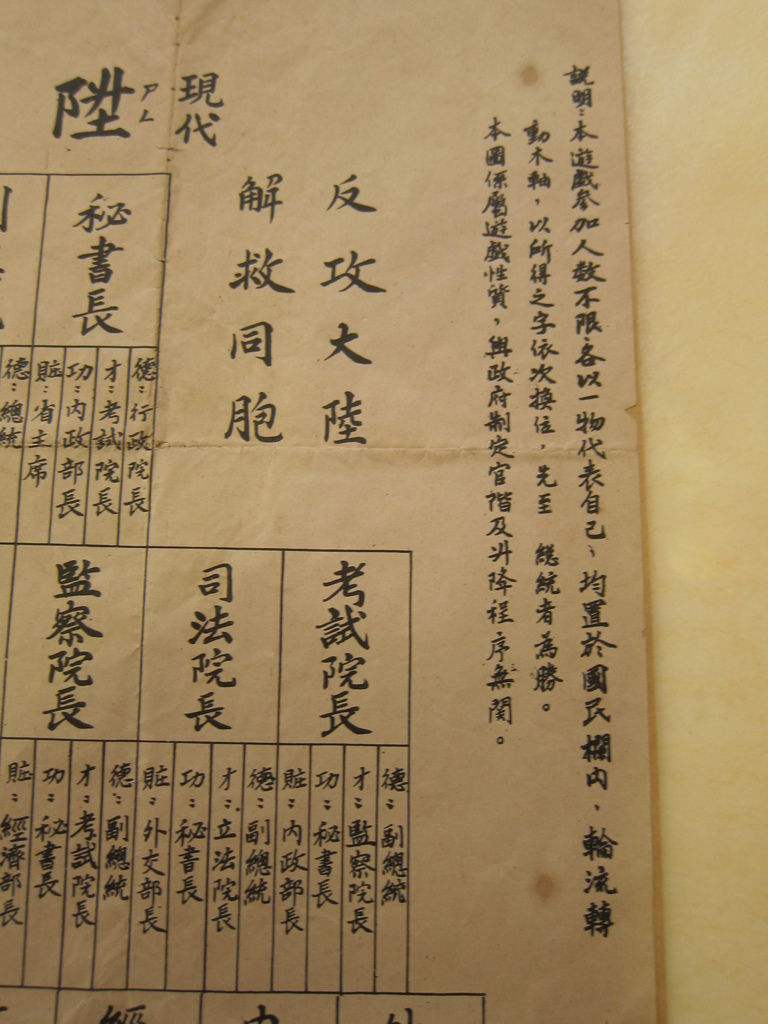 説明：本遊戲參加人數不限，各以一物代表自己，均置於國民欄内，輪流轉
動木軸，以所得之字依次換位，先至　總統者為勝。
本圖係屬遊戲性質，與政府制定官階及升降程序無関。
現代
陞
ㄕㄥ
反攻大陸
解救同胞
秘書長
德：行政院長
才：考試院長
功：内政部長
賍：省主席
德：總統
考試院長
德：副總統
才：監察院長
功：秘書長
賍：内政部長
司法院長
德：副總統
才：立法院長
功：秘書長
賍：外交部長
監察院長
德：副總統
才：考試院長
功：秘書長
賍：經濟部長